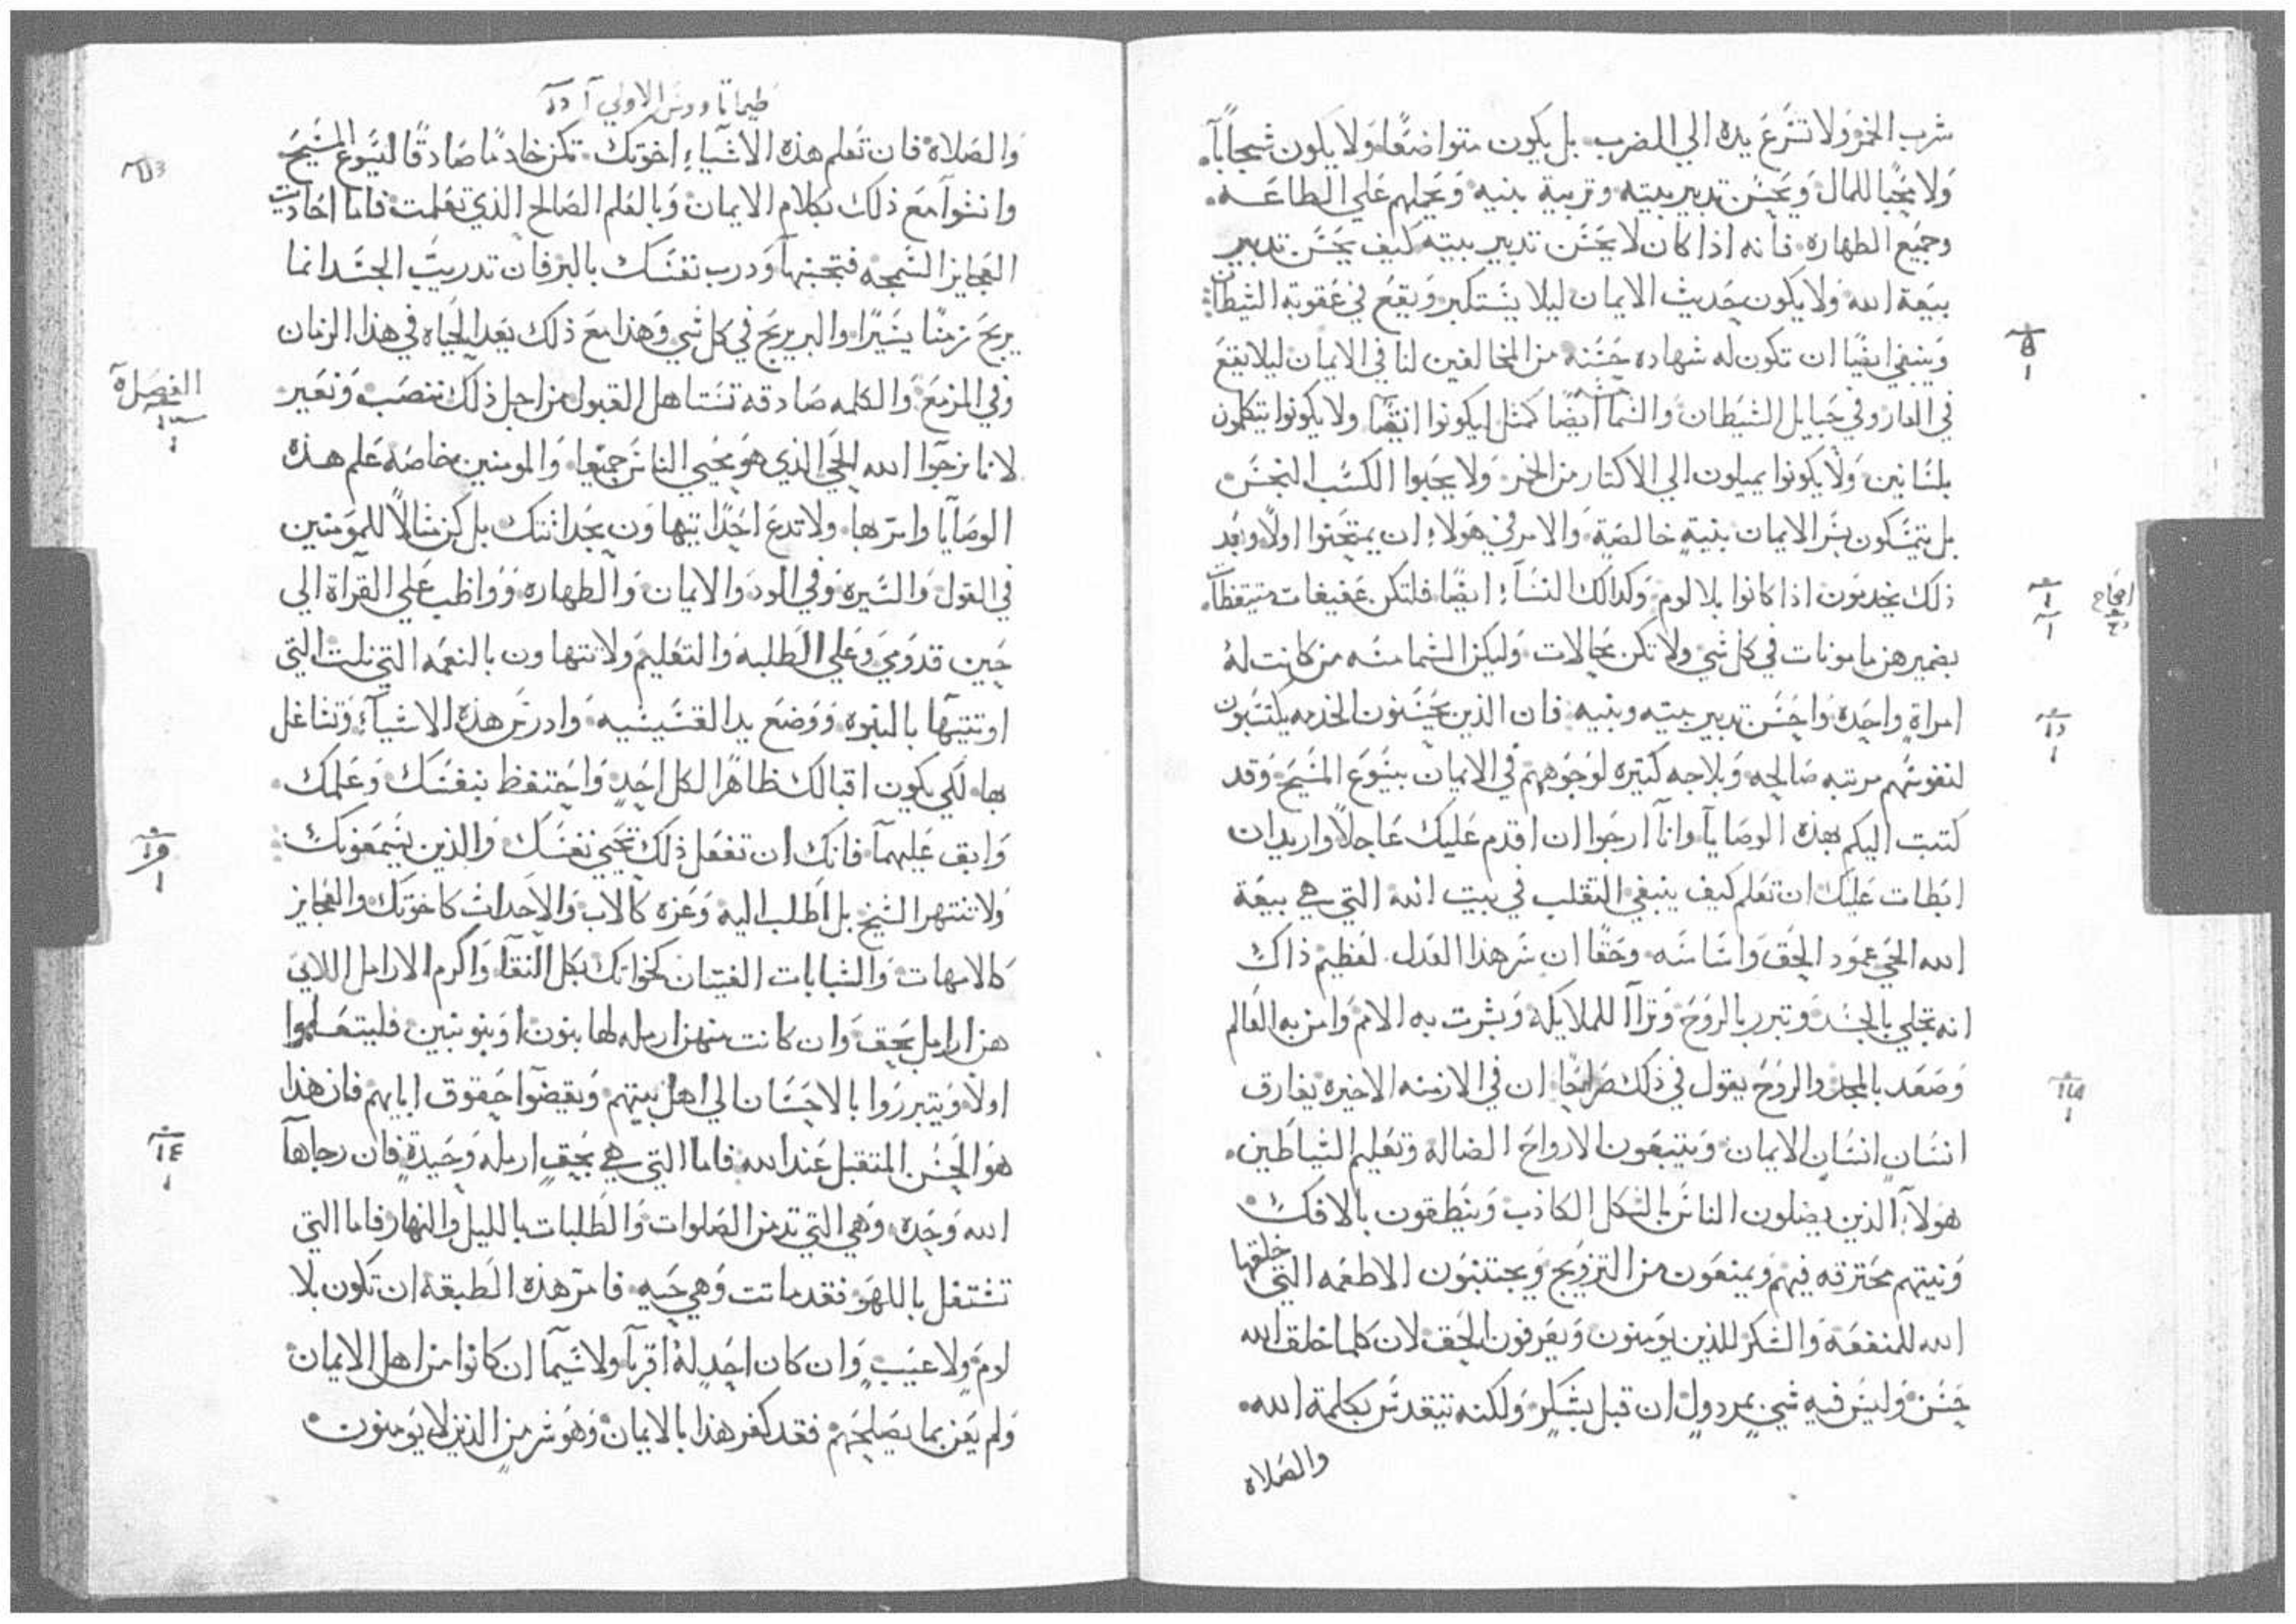 شرب الخمر ولا تشرع يده الي الضرب بل يكون متواضعًا ولا يكون شجاباً
ولا محبًا للمال ويحسن تدبير بيته وتربية بنيه ويحملهم علي الطاعه
وجميع الطهاره فانه اذا كان لا يحسن تدبير بيته كيف يحسن تدبير
بيعة الله ولا يكون حديث الايمان ليلا يستكبر ويقع في عقوبة الشيطان
وينبغي ايضًا ان تكون له شهاده حسنه من المخالفين لنا في الايمان ليلا يقع
في العار وفي حبايل الشيطان والشمامسه ايضًا كمثل ليكونوا انقيآ ولا يكونوا يتكلمون
بلسانين ولا يكونوا يميلون الي الاكتار من الخمر ولا يحبوا الكسب النجس
بل يتمسكون بسر الايمان بنية خالصة والامر في هولاء ان يمتحنوا اولًا وبعد
ذلك يخدمون اذا كانوا بلا لوم وكدالك النسآء ايضًا فلتكن عفيفات متيقظات
بضميرهن مامونات في كل شي ولا تكن محالات وليكن الشمامسه من كانت له
امراة واحدة واحسن تدبير بيته وبنيه فان الذين يحسنون الخدمه يكتسبون
لنفوسهم مرتبه صالحه وبلاجه كتيره لوجوههم في الايمان بيسوع المسيح وقد
كتبت اليكم بهذه الوصايا وانا ارجوا ان اقدم عليك عاجلًا واريد ان
ابطات عليك ان تعلم كيف ينبغي التقلب في بيت الله التي هي بيعة
الله الحي عمود الحق واساسه وحقًا ان سر هذا العدل لعظيم ذاك
انه تجلي بالجسد وتبرر بالروح وتراآ للملايكه وبشرت به الامم وامن به العالم
وصعد بالمجد والروح يقول في ذلك صراحًا ان في الازمنه الاخيره يفارق
انسان انسان الايمان ويتبعون الارواح الضالة وتعليم الشياطين
هولآء الذين يضلون الناس بالشكل الكاذب وينطقون بالافك
ونيتهم محترقه فيهم ويمنعون من التزويج ويجتنبون الاطعمه التي خلقها
الله للمنفعة والشكر للذين يومنون ويعرفون الحق لان كلما خلق الله
حسن وليس فيه شي بمردول ان قبل بشكر ولكنه يتقدس بكلمة الله
والصلاه
امحاح
طيماتاووس الاولي
والصلاة فان تعلم هذه الاشياء اخوتك تكن خادمًا صادقًا ليسوع المسيح
وانشوا مع ذلك بكلام الايمان وبالعلم الصالح الذي تعلمت فاما احاديت
العجايز السمجه فتجنبها ودرب نفسك بالبر فان تدريب الجسد انما
يربح زمنًا يسيرًا والبر يربح في كل شي وهذا مع ذلك يعد الحياه في هذا الزمان
وفي المزمع والكلمه صادقه تستاهل القبول من اجل ذلك ننصب ونعير
لانا نرجوا الله الحي الذي هو محيي الناس جميعا والمومنين خاصة علم هذه
الوصايا وامر بها ولا تدع احدًا يتهاون بحداثتك بل كن مثالًا للمومنين
في القول والسيره وفي الود والايمان والطهاره وواظب علي القرآة الي
حين قدومي وعلي الطلبه والتعليم ولا تتهاون بالنعمه التي نلت التي
اوتيتها بالنبوه ووضع يد القسيسيه وادرس هذه الاشيآء وتشاغل
بها لكي يكون اقبالك ظاهرًا لكل احد واحتفظ بنفسك وعلمك
وابق عليهما فانك ان تفعل ذلك تحيي نفسك والذين يسمعونك
ولا تنتهر الشيخ بل اطلب اليه وعزه كالاب والاحداث كاخوتك والعجايز
كالامهات والشابات الفتيان كخواتك بكل النقآ واكرم الارامل اللاتي
هن ارامل بحق وان كانت منهن ارمله لها بنون او بنو بنين فليتعلموا
اولًا ويتبرروا بالاحسان الي اهل بيتهم ويقضوا حقوق ابايهم فان هذا
هو الحسن المتقبل عند الله فاما التي هي بحق ارمله وحيدة فان رجاها
الله وحده وهي التي تدمن الصلوات والطلبات بالليل والنهار فاما التي
تشتغل باللهو فقد ماتت وهي حيه فامر هذه الطبقة ان تكون بلا
لوم ولا عيب وان كان احد له اقربآ ولا سيما ان كانوا من اهل الايمان
ولم يعن بما يصلحهم فقد كفر هذا بالايمان وهو شر من الذين لا يومنون
الفصل